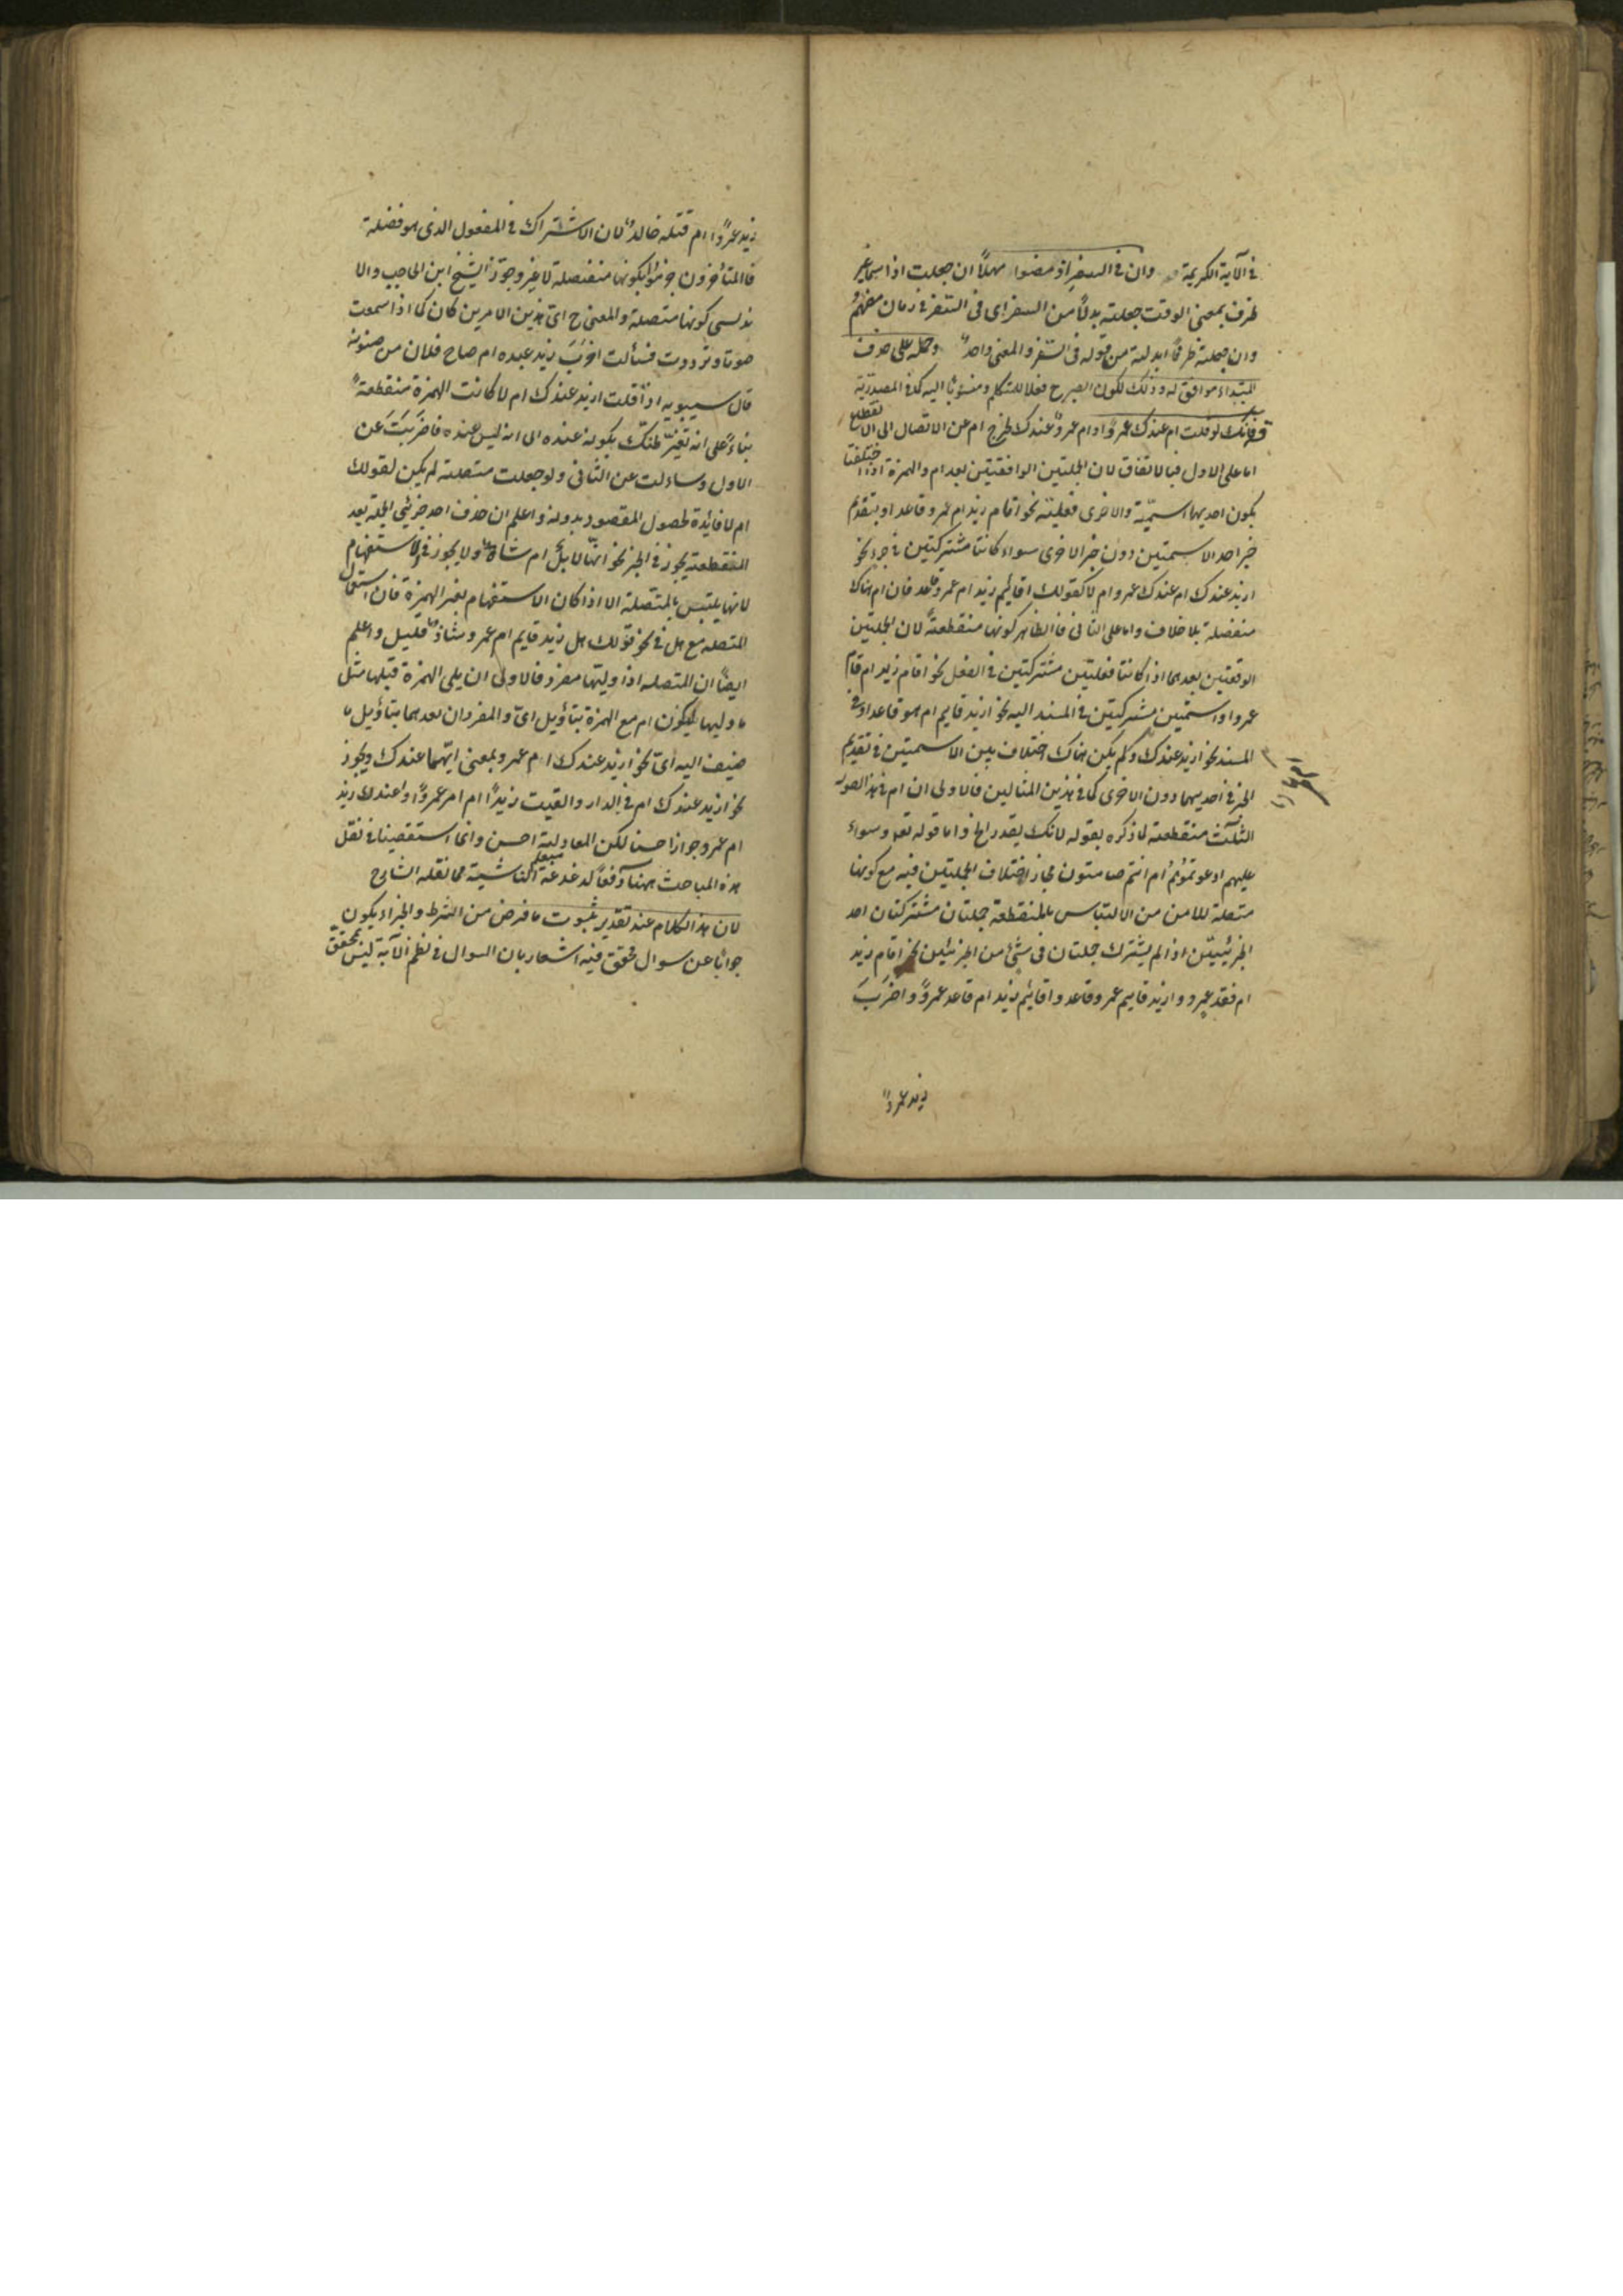 في الآية الكريمة وان في السفر اذ مضوا مهلا ان جعلت اذ اسما غير
ظرف بمعنى الوقت جعلته بدلا من السفر اي في السفر في زمان مضيهم
وان جعلته ظرفا ابدلته من قوله في السفر والمعنى واحد وحمله على حذف
المبتداء موافق له وذلك لكون الصرح فعلا للمتكلم ومنسوبا اليه كذا في المصدرية
فانك لو قلت ام عندك عمرو او ام عمرو عندك لخرج ام عن الاتصال الى الانقطاع
اما على الاول فبالاتفاق لان الجملتين الواقعتين بعد ام والهمزة اذا اختلفتا
بكون احديهما اسمية والاخرى فعلية نحو اقام زيد ام عمرو قاعد او بتقديم
خبر احد الاسميتين دون خبر الاخرى سواء كانتا مشتركتين في جزء نحو
ازيد عندك ام عندك عمرو ام لا كقولك اقائم زيد ام عمرو قاعد فان ام هناك
منفصلة بلا خلاف واما على الثاني فالظاهر كونها منقطعة لان الجملتين
الوقعتين بعدهما اذا كانتا فعليتين مشتركتين في الفعل نحو اقام زيد ام قام
عمرو او اسميتين مشتركتين في المسند اليه نحو ازيد قايم ام هو قاعد او في
المسند نحو ازيد عندك ولم يكن هناك اختلاف بين الاسميتين في تقديم
الخبر في احديهما دون الاخرى كما في هذين المثالين فالاولى ان ام في هذه الصور
الثلث منقطعة لما ذكره بقوله لانك يقدر الخ واما قوله تعم وسواء
عليهم ادعوتموهم ام انتم صامتون فجاز اختلاف الجملتين فيه مع كونها
متصلة للامن من الالتباس بالمنقطعة جملتان مشتركتان احد
الجزئيين اذا لم يشترك جملتان في شئ من الجزئين نحو اقام زيد
ام قعد عمرو وازيد قايم عمرو قاعد واقائم زيد ام قاعد عمرو واضرب
زيد عمروا
زيد عمروا ام قتله خالد لان الاشتراك في المفعول الذي هو فضلة
فالمتأخرون جزموا بكونها منفصلة لا غير وجوز الشيخ ابن الحاجب والا
ندلسي كونها متصلة والمعنى ح اي هذين الامرين كان كما اذا سمعت
صوتا وترددت فسألت اضرب زيد عبده ام صاح فلان من جنونه
قال سيبويه اذا قلت ازيد عندك ام لا كانت الهمزة منقطعة
بناء على انه تغير ظنك بكونه عنده الى انه ليس عنده فاضربت عن
الاول وساءلت عن الثاني ولو جعلت متصلة لم يكن لقولك
ام لا فائدة لحصول المقصود بدونه واعلم ان حذف احد جزئي الجملة بعد
المنقطعة يجوز في الخبر نحو انها لابل ام شاة ولا يجوز في الاستفهام
لانها يلتبس بالمتصلة الا اذا كان الاستفهام بغير الهمزة فان استعمال
المتصلة مع هل في نحو قولك هل زيد قايم ام عمرو شاذ قليل واعلم
ايضا ان المتصلة اذا وليتها مفرد فالاولى ان يلي الهمزة قبلها مثل
ما وليها ليكون ام مع الهمزة بتأويل اي والمفردان بعدهما بتأويل ما
ضيف اليه اي نحو ازيد عندك ام عمرو بمعنى ايهما عندك ويجوز
نحو ازيد عندك ام في الدار والقيت زيدا ام عمروا واعندك زيد
ام عمرو جوازا حسنا لكن المعادلة احسن وانما استقصينا في نقل
هذه المباحث ههنا دفعا لدغدغة الناشية مما نقله الشارح
لان هذا الكلام عند تقدير ثبوت ما فرض من الشرط والجزاء يكون
جوابا عن سوال محقق فيه اشعار بان السوال في نظم الآية ليس بمحقق